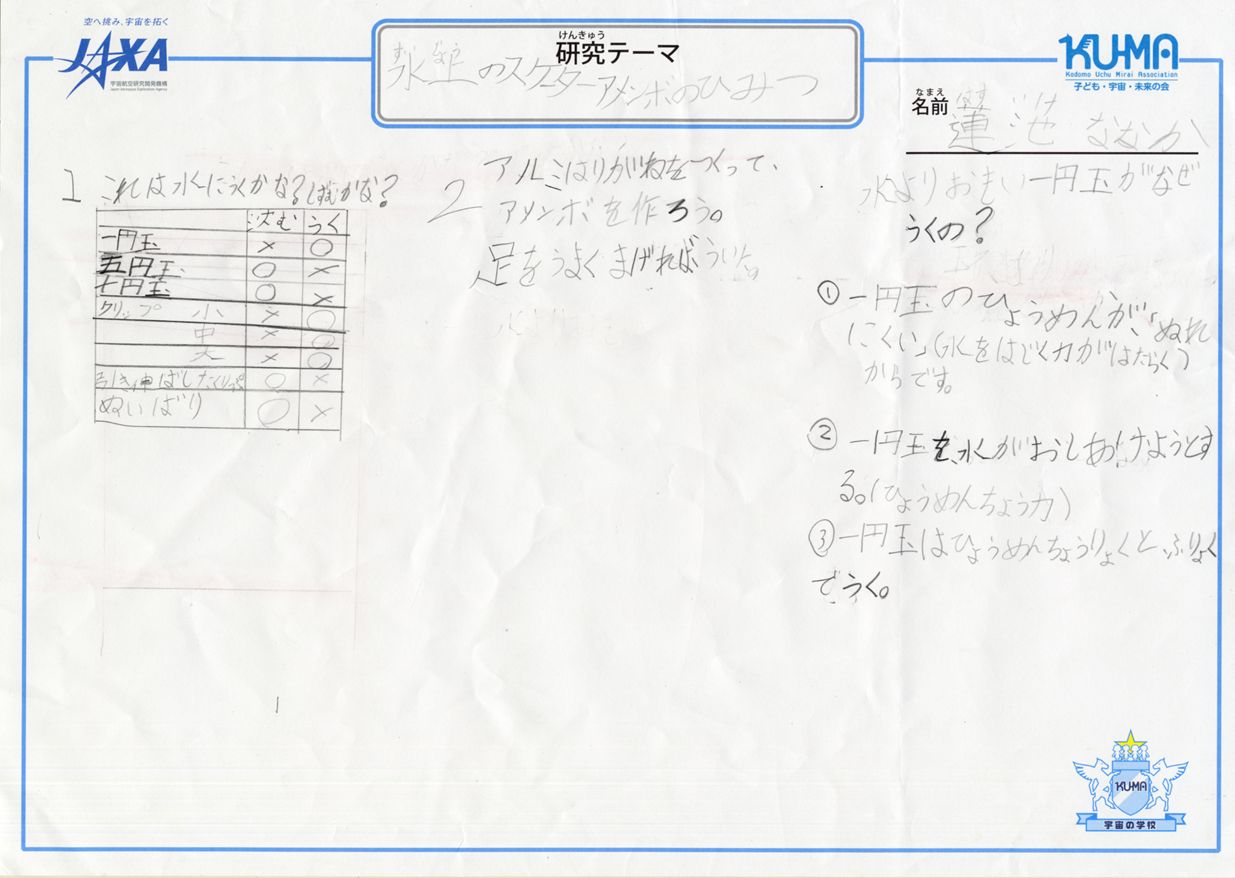 空へ挑み、宇宙を拓く
JAXA
宇宙航空研究開発機構
Japan Aerospace Exploration Agency
けんきゅう
研究テーマ
のスケーターアメンボのひみつ
KU-MA
Kodomo Uchu Mirai Association
子ども・宇宙・未来の会
なまえ
名前
蓮池 ななか
1 これは水にうくかな?しずむかな?
沈む うく
一円玉 × ○
五円玉 ○ ×
十円玉 ○ ×
クリップ 小 × ○
中 × ○
大 × ○
引き伸ばしたくりっぷ ○ ×
ぬいばり ○ ×
2 アルミはりがねをつくって、
アメンボを作ろう。
足をうよくまげればういた。
水よりおもい一円玉がなぜ
うくの?
① 一円玉のひょうめんが、「ぬれ
にくい」(水をはじく力がはたらく)
からです。
② 一円玉を、水がおしあげようとす
る。(ひょうめんちょう力)
③ 一円玉はひょうめんちょうりょくと、ふりょく
でうく。
KU-MA
宇宙の学校